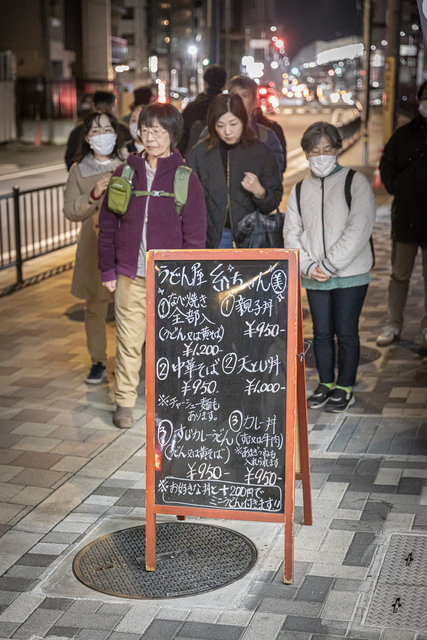 うどん屋 糸ちゃん 実
①なべ焼き
全部入
(うどん又は黄そば)
¥1.200-
①親子丼
¥950-
②中華そば
¥950-
※チャーシュー麺も
あります。
②天とじ丼
¥1.000-
③すじカレーうどん
(うどん又は黄そば)
¥950-
③カレー丼
(すじ又は牛肉)
入れられます
¥950-
※お好きな丼と+200円で
ミニうどん付きます!!